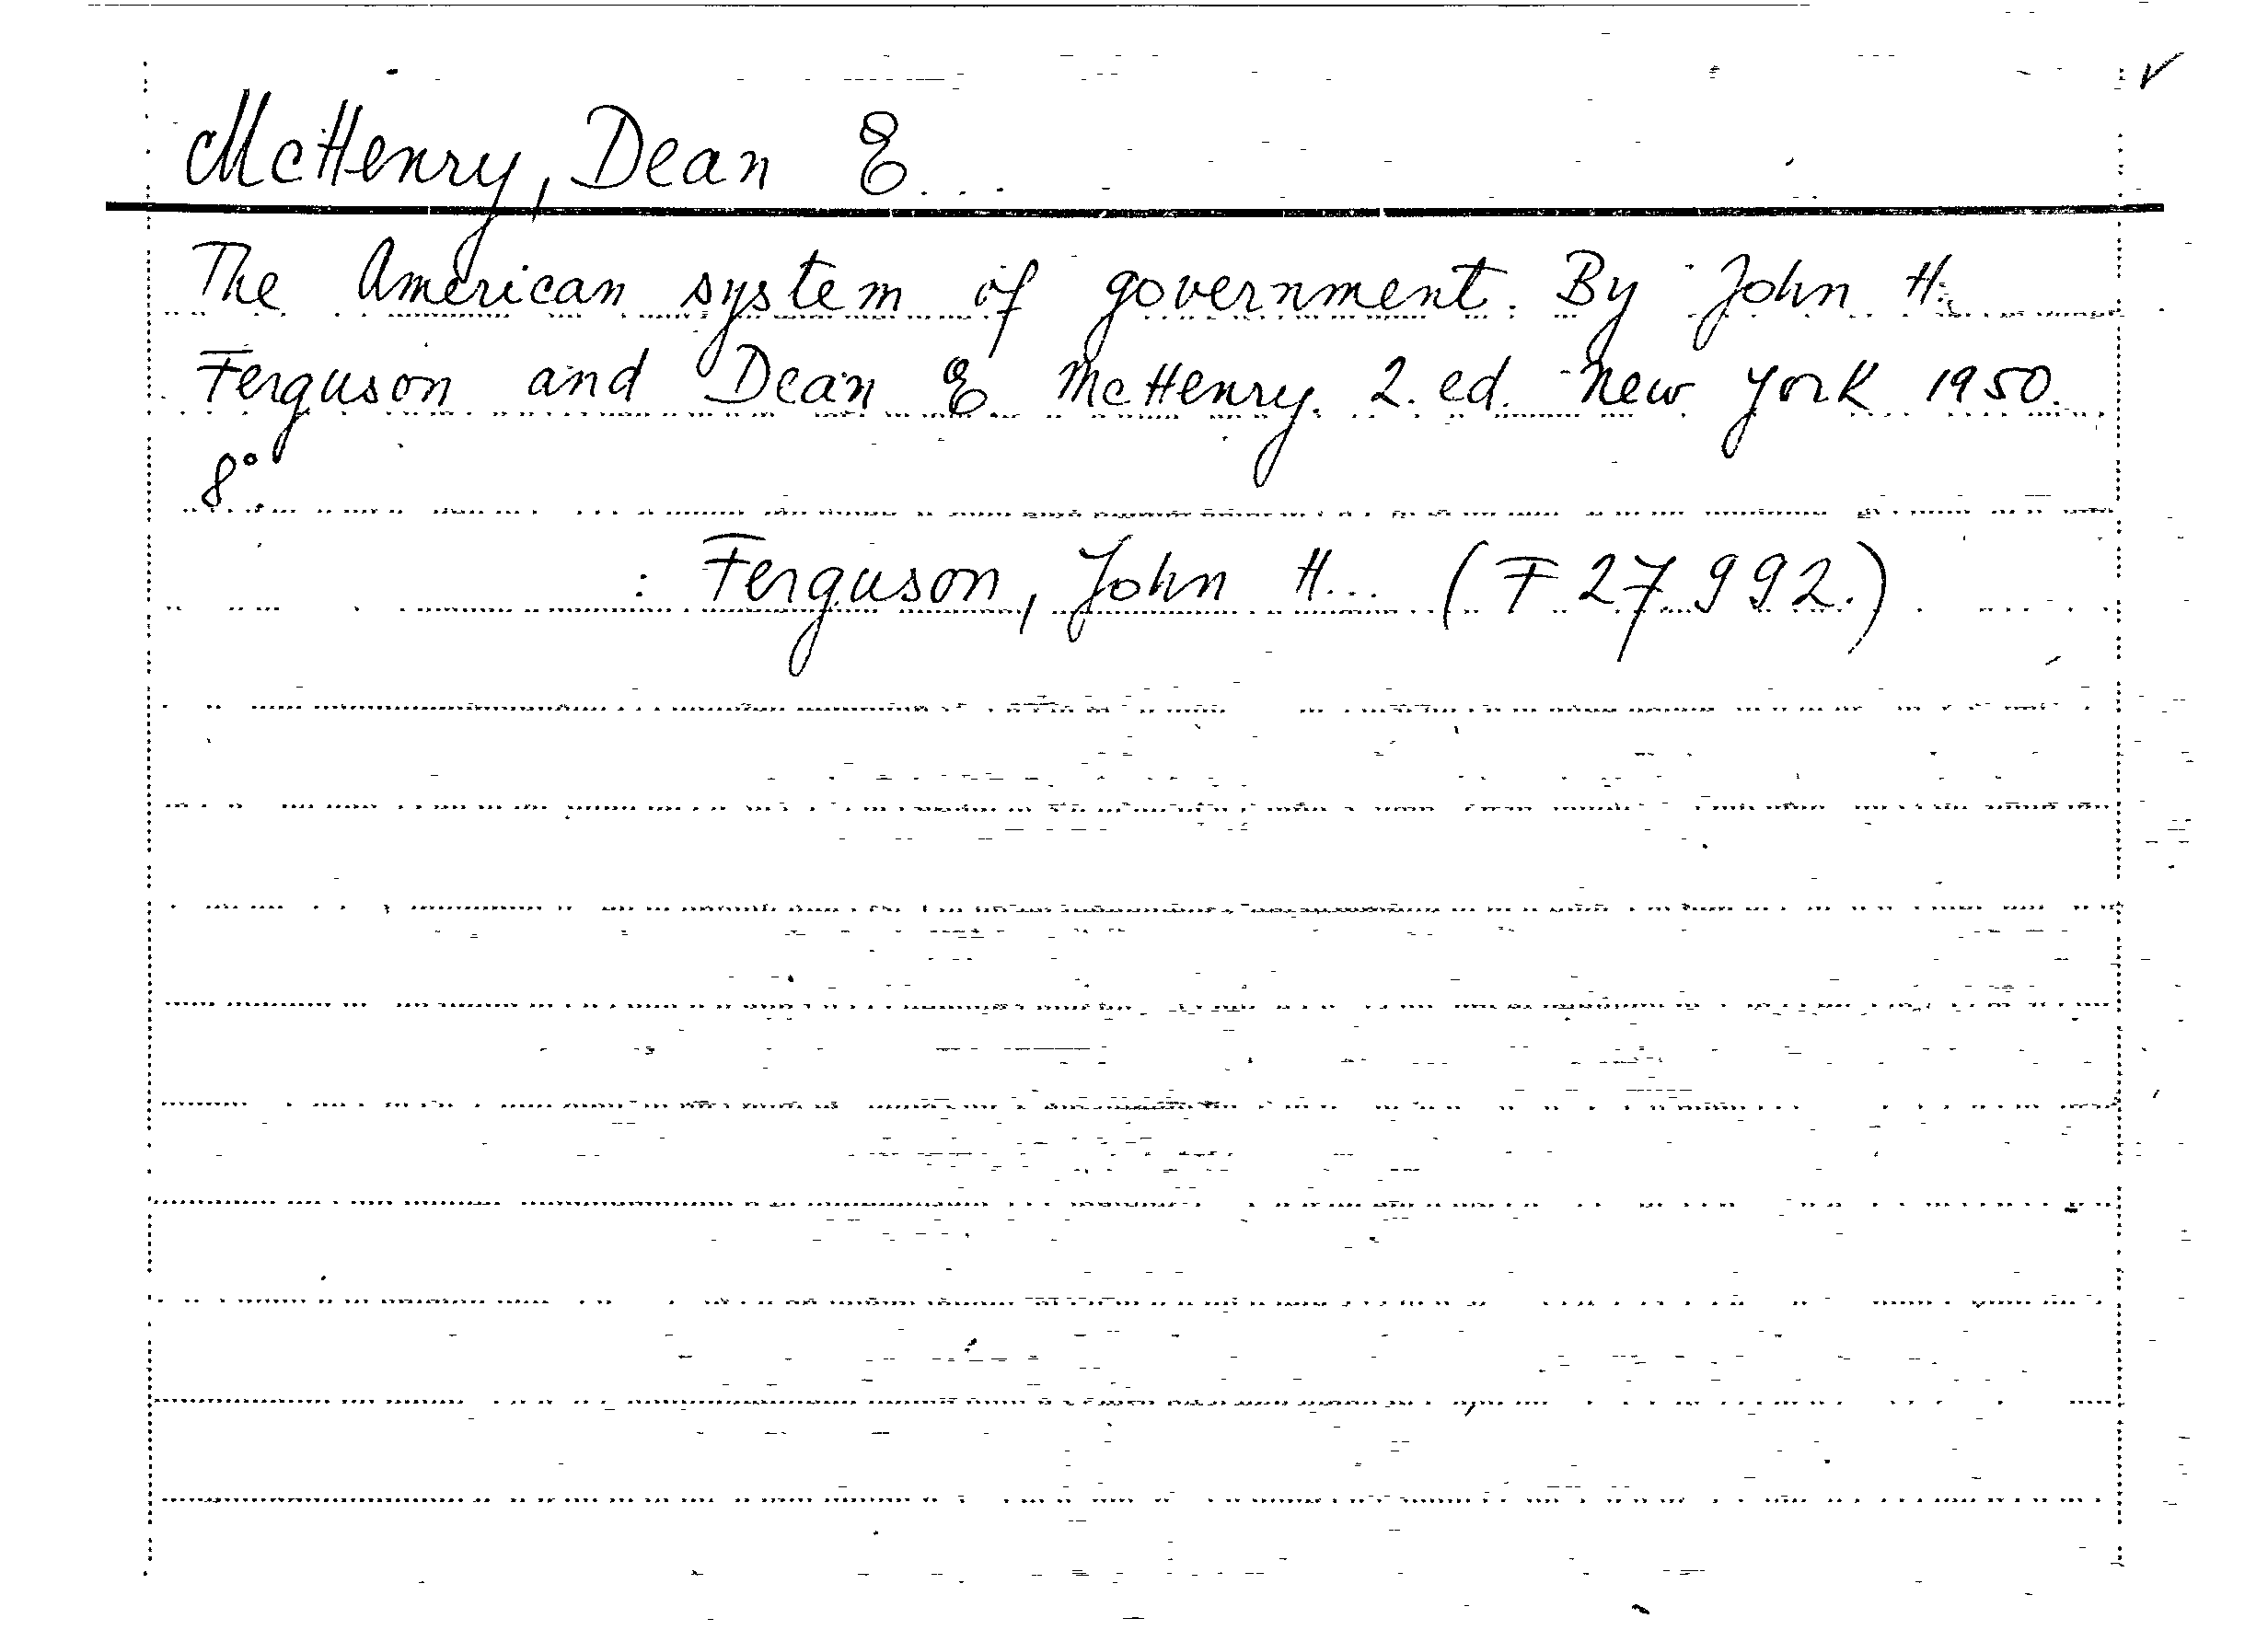 McHenry, Dean E...
The American system of government. By John H.
Ferguson and Dean E. McHenry. 2. ed. New York 1950.
8°.
: Ferguson, John H... (F 27.992.)